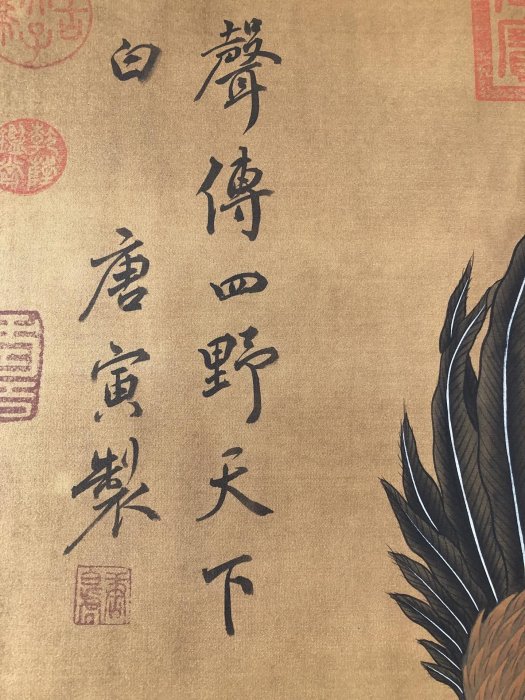 聲傳四野天下
白
唐寅製